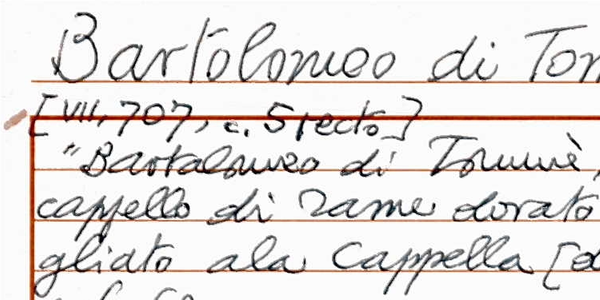 Bartolomeo di Tom
[VII, 707, c. 5 recto]
"Bartalomeo di Tommè,
cappello di rame dorato
gliato ala Cappella [d